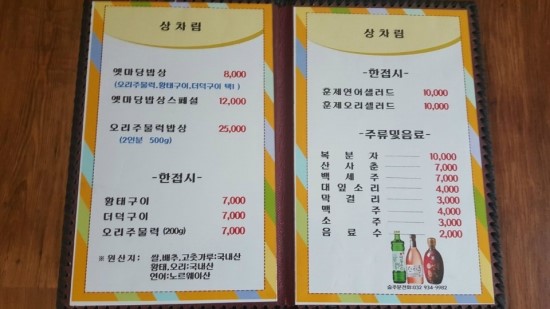 상 차 림
옛마당밥상 8,000
(오리주물럭,황태구이,더덕구이 택1)
옛마당밥상스페셜 12,000
오리주물럭밥상 25,000
(2인분 500g)
-한접시-
황태구이 7,000
더덕구이 7,000
오리주물럭 (200g) 7,000
※ 원산지: 쌀,배추,고춧가루:국내산
황태,오리:국내산
연어:노르웨이산
상 차 림
-한접시-
훈제연어샐러드 10,000
훈제오리샐러드 10,000
-주류및음료-
복 분 자 10,000
산 사 춘 7,000
백 세 주 7,000
대 잎 소 리 4,000
막 걸 리 3,000
맥 주 4,000
소 주 3,000
음 료 수 2,000